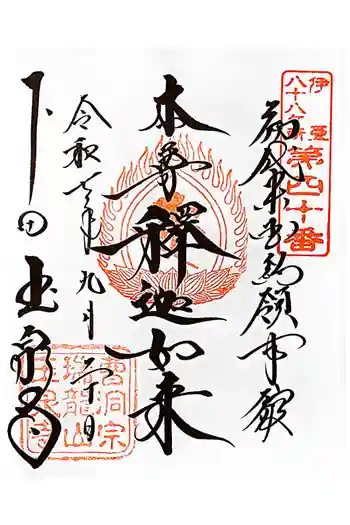 伊豆
八十八ヶ所
第四十番
初代米国総領事館
本尊 釋迦如来
令和年九月二十日
下田 玉泉寺
曹洞宗
瑞龍山
玉泉寺